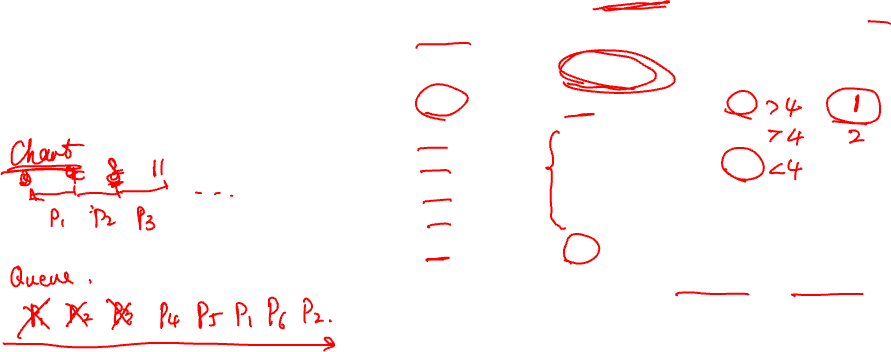 Chart
11
P1 P2 P3 ...
Queue.
P1 P2 P3 P4 P5 P1 P6 P2.
>4 1
>4 2
<4